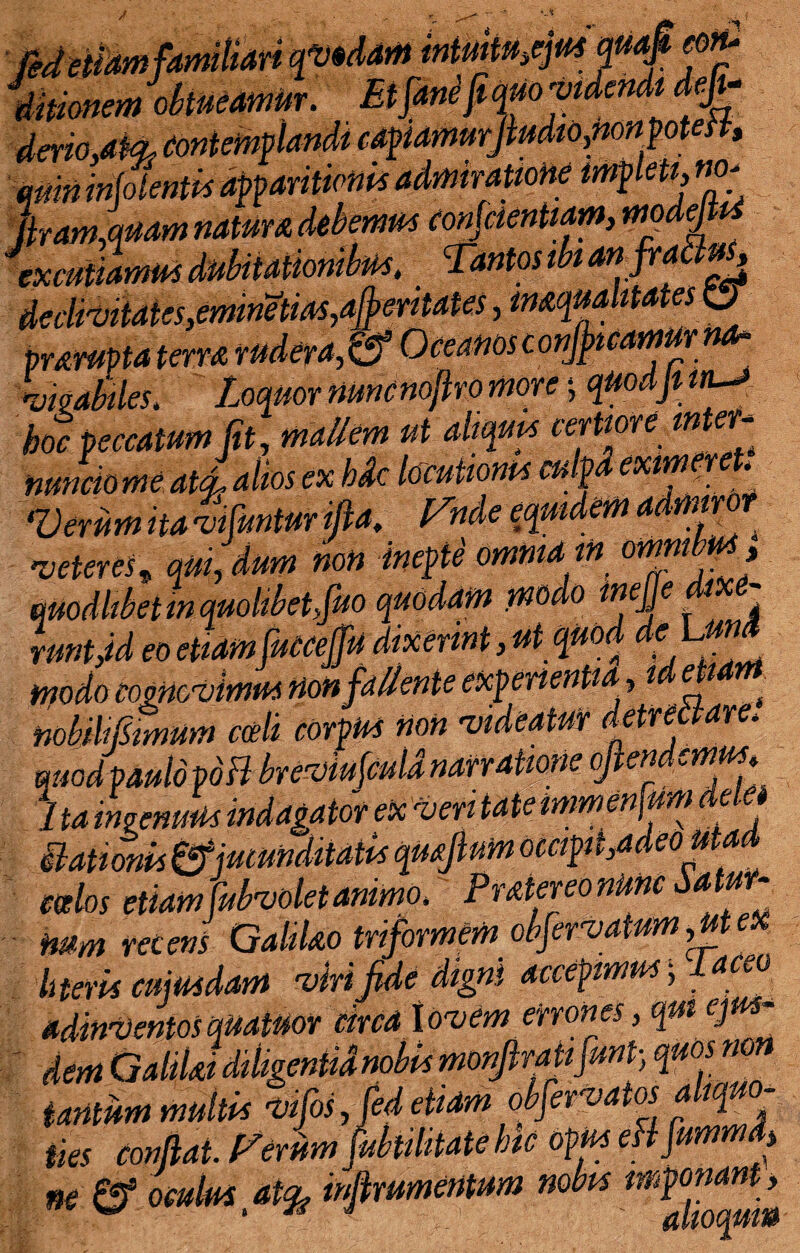 ſed etiam familiari qvodam intuitu, ejus quaſi con-
ditionem obtueamur. Et ſanè ſi quo videndi deſi-
derio, atq; contemplandi capiamur ſtudio, non poteſt,
quin inſolentis apparitionis admiratione impleti, no-
ſtram, quam naturæ debemus conſcientiam, modeſtis
excutiamus dubitationibus. Tantos ibi anfractus,
declivitates, eminētias, aſperitates, inæqualitates &
prærupta terræ rudera, & Oceanos conſpicamur na-
vigabiles. Loquor nunc noſtro more; quod ſi in
hoc peccatum ſit, mallem ut aliquis certiore inter-
nuncio me atq; alios ex hâc locutionis culpâ eximeret.
Verùm ita viſuntur iſta. Vnde equidem admiror
veteres, qui, dum non ineptè omnia in omnibus;
quodlibet in quolibet, ſuo quodam modo ineſſe dixe-
runt, id eo etiam ſucceſſu dixerint, ut quod de Lunâ
modo cognovimus non fallente experientiâ, id etiam
nobiliſſimum cœli corpus non videatur detrectare.
quod paulò pòſt breviuſculâ narratione oſtendemus.
Ita ingenuus indagator ex veritate immenſum dele-
ctationis & jucunditatis quæſtum occipit, adeo ut ad
cœlos etiam ſubvolet animo. Prætereo nunc Satur-
num recens Galilæo triformem obſervatum, ut ex
literis cujusdam viri fide digni accepimus; Taceo
adinventos quatuor circa Iovem errones, qui ejus-
dem Galilæi diligentiâ nobis monſtrati ſunt; quos non
tantùm multis viſos, ſed etiam obſervatos aliquo-
ties conſtat. Verùm ſubtilitate hîc opus eſt ſummâ,
ne & oculus atq; inſtrumentum nobis imponant,
alioquin